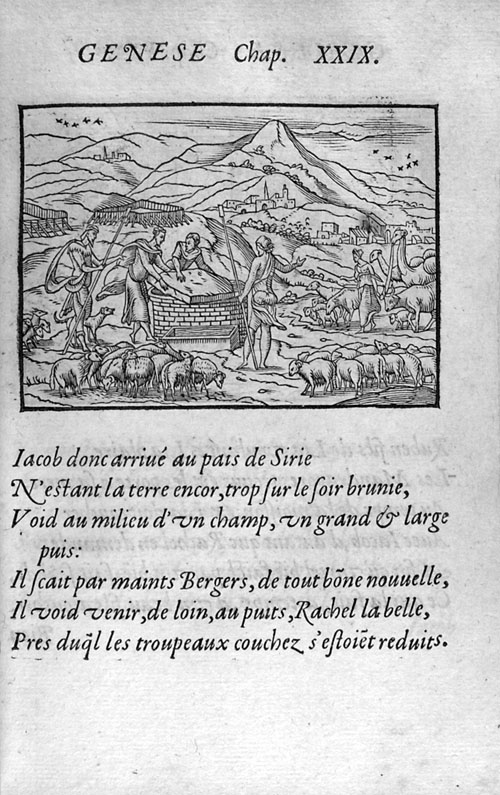 GENESE Chap. XXIX.
Iacob donc arriué au pais de Sirie
N'estant la terre encor, trop sur le soir brunie,
Void au milieu d'vn champ, vn grand & large
puis:
Il scait par maints Bergers, de tout bõne nouuelle,
Il void venir, de loin, au puits, Rachel la belle,
Pres duq̃l les troupeaux couchez s'estoiẽt reduits.